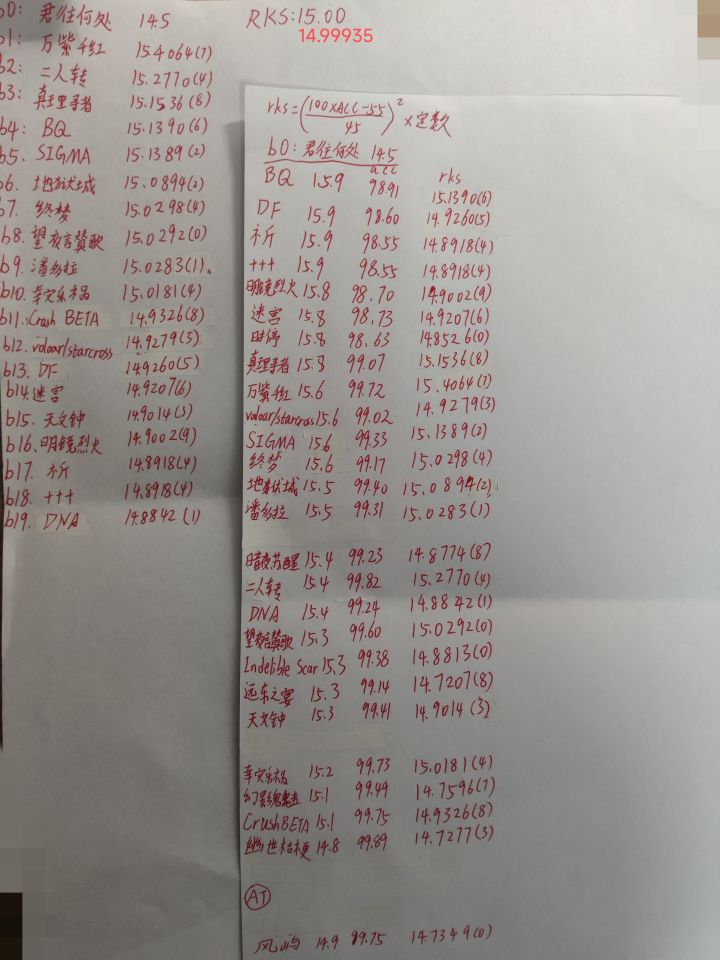 b0: 君往何处 14.5
RKS:15.00
14.99935
b1: 万紫千红 15.4064(7)
b2: 二人转 15.2770(4)
b3: 真理寻者 15.1536(8)
b4: BQ 15.1390(6)
b5. SIGMA 15.1389(2)
b6. 地狱城 15.0894(2)
b7. 终梦 15.0298(4)
b8. 望夜言赞歌 15.0292(0)
b9. 潘多拉 15.0283(1).
b10. 幸灾乐祸 15.0181(4)
b11. Crash BETA 14.9326(8)
b12. volaar/starcross 14.9279(3)
b13. DF 14.9260(5)
b14. 迷宫 14.9207(6)
b15. 天文钟 14.9014(3)
b16. 明镜烈火 14.9002(9)
b17. 祈 14.8918(4)
b18. +++ 14.8918(4)
b19. DNA 14.8842(1)
rks=(100×ACC-55/45)²×定数
b0: 君往何处 14.5
acc rks
BQ 15.9 98.91 15.1390(6)
DF 15.9 98.60 14.9260(5)
祈 15.9 98.55 14.8918(4)
+++ 15.9 98.55 14.8918(4)
明镜烈火 15.8 98.70 14.9002(9)
迷宫 15.8 98.73 14.9207(6)
时停 15.8 98.63 14.8526(0)
真理寻者 15.8 99.07 15.1536(8)
万紫千红 15.6 99.72 15.4064(7)
volaar/starcross 15.6 99.02 14.9279(3)
SIGMA 15.6 99.33 15.1389(2)
终梦 15.6 99.17 15.0298(4)
地狱城 15.5 99.40 15.0894(2)
潘多拉 15.5 99.31 15.0283(1)
暗夜苏醒 15.4 99.23 14.8774(8)
二人转 15.4 99.82 15.2770(4)
DNA 15.4 99.24 14.8842(1)
望夜言赞歌 15.3 99.60 15.0292(0)
Indelible Scar 15.3 99.38 14.8813(0)
远东之宴 15.3 99.14 14.7207(8)
天文钟 15.3 99.41 14.9014(3)
幸灾乐祸 15.2 99.73 15.0181(4)
幻影魂魅 15.1 99.49 14.7596(7)
Crush BETA 15.1 99.75 14.9326(8)
幽世桔梗 14.8 99.89 14.7277(3)
AT
风屿 14.9 99.75 14.7349(0)